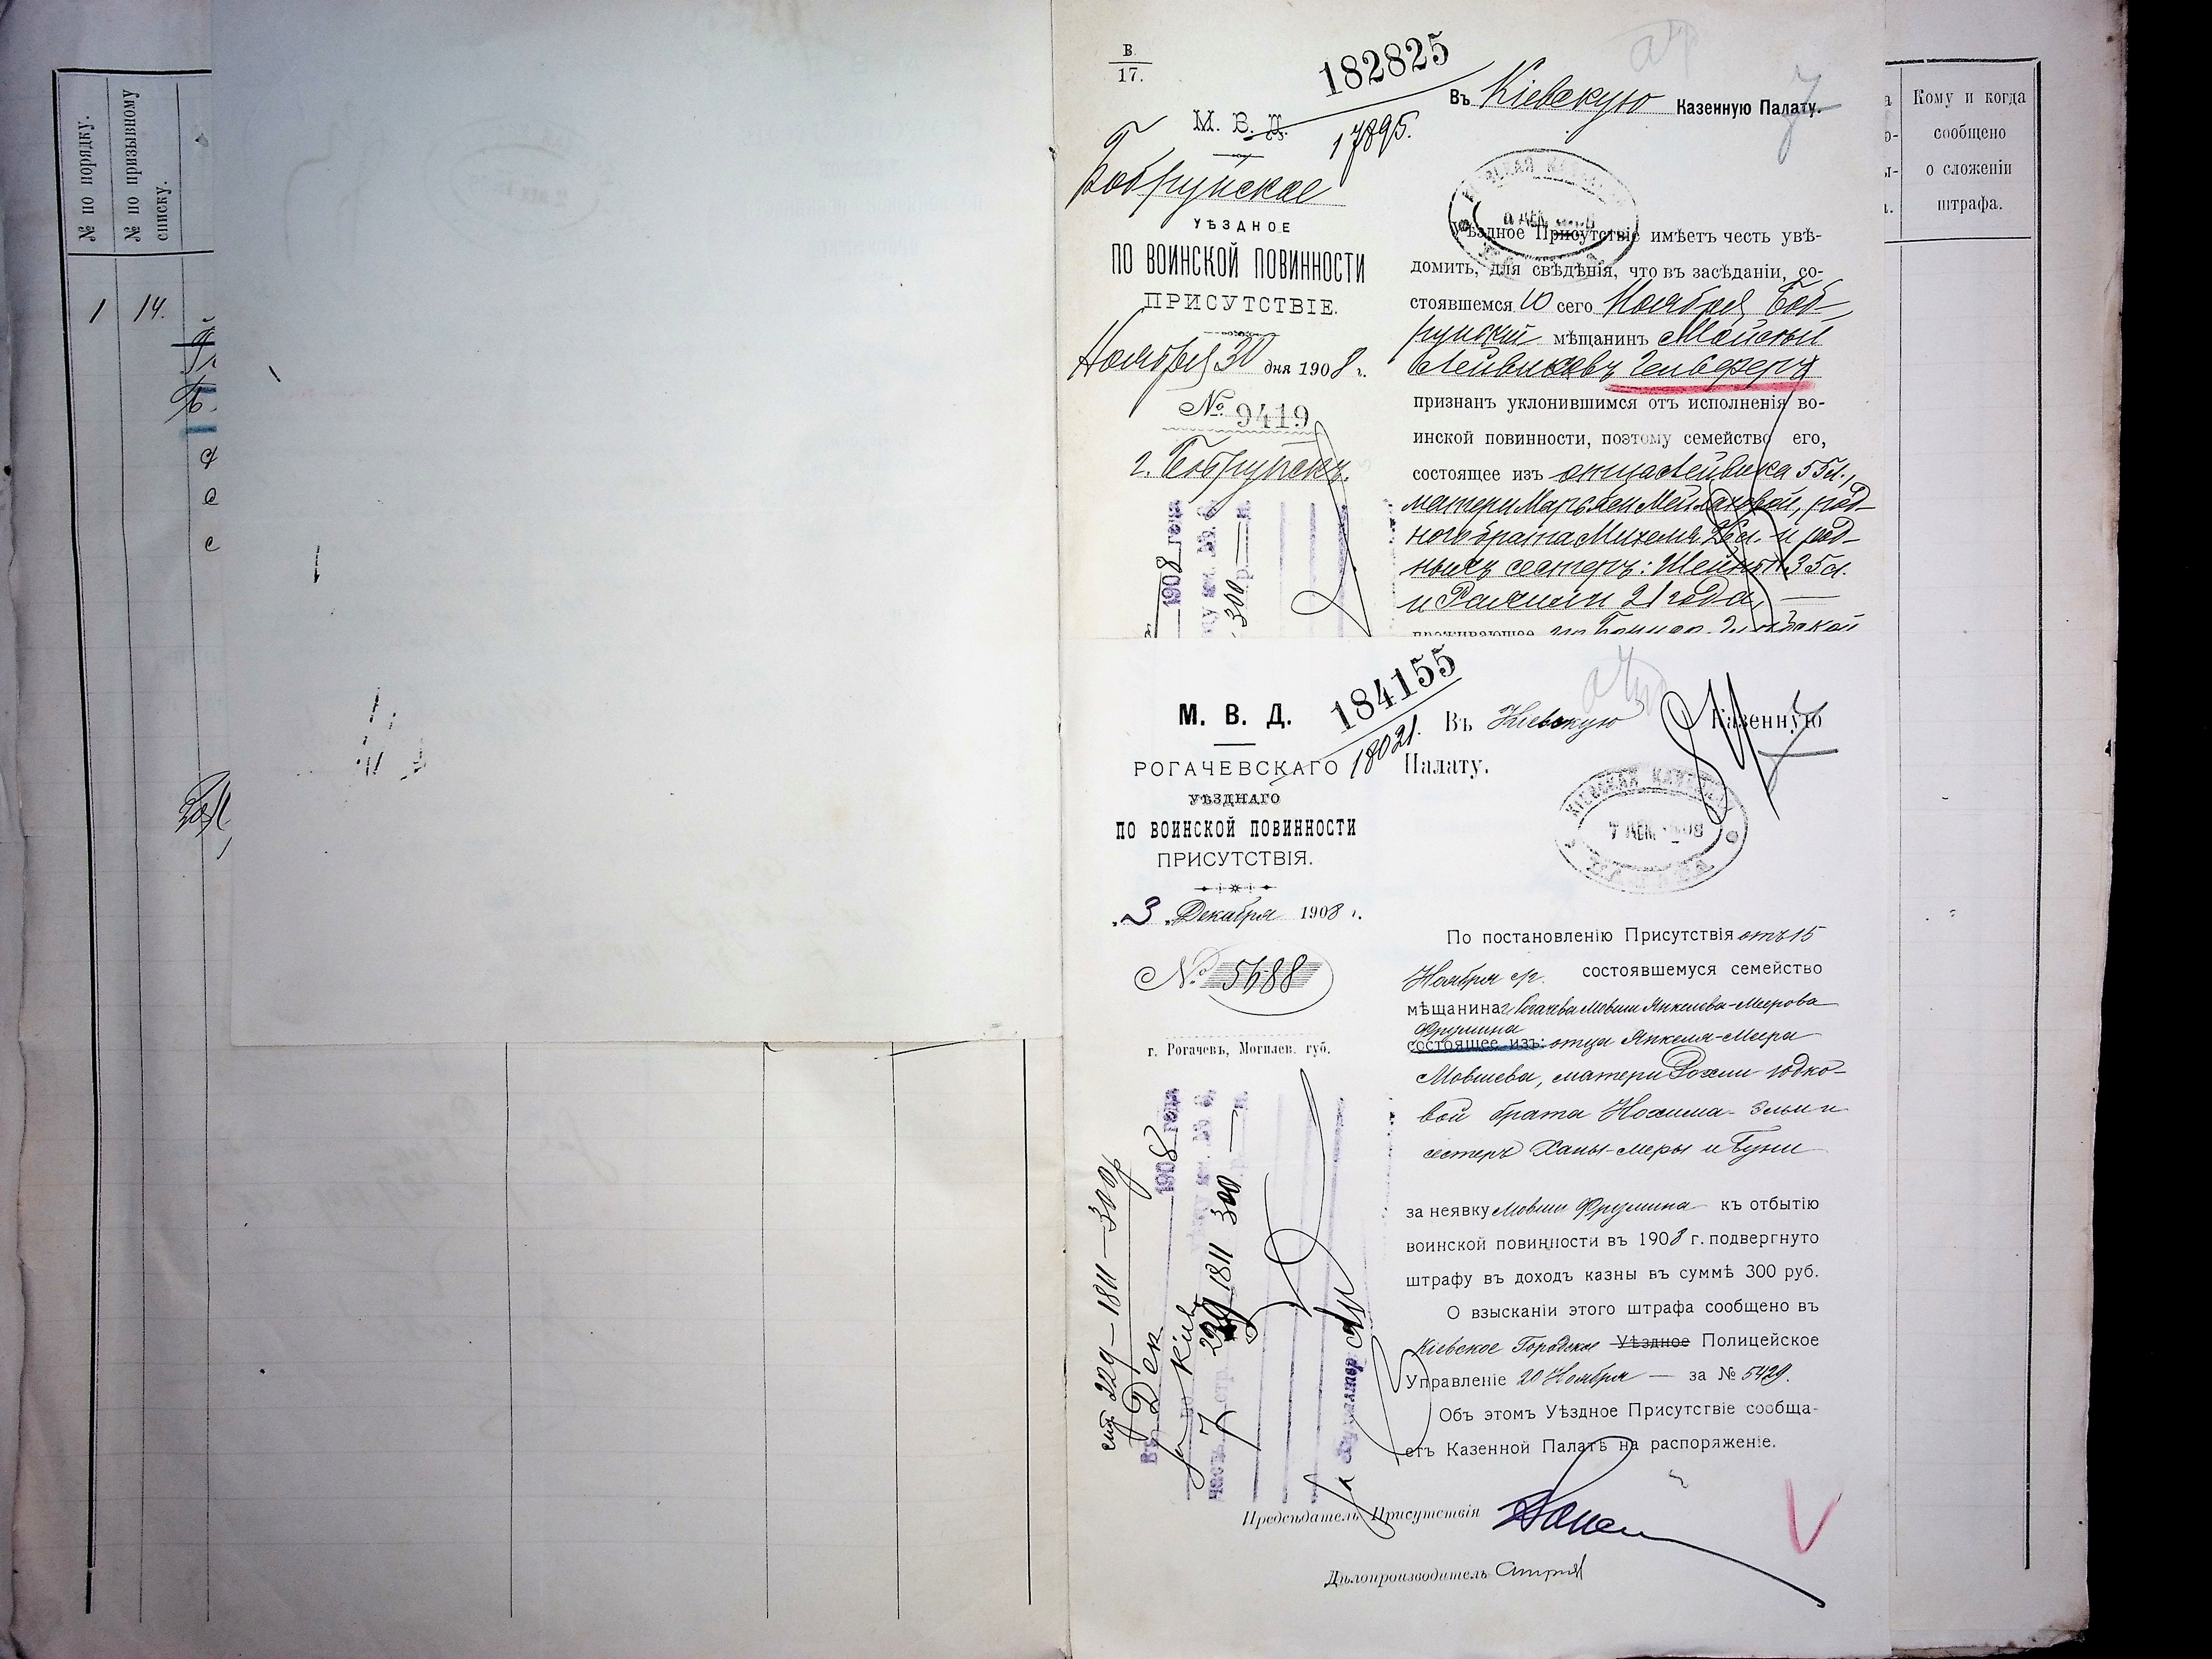 № по порядку.
№ по призывному
списку.
1
14.
В.
17.
182825
17895.
М. В. Д.
Бобруйское
УѢЗДНОЕ
ПО ВОИНСКОЙ ПОВИННОСТИ
ПРИСУТСТВІЕ.
Ноября 30 дня 1908 г.
№ 9419
г. Бобруйскъ.
1908 года
300 р
Въ Кіевскую Казенную Палату.
7
Уѣздное Присутствіе имѣетъ честь увѣ-
домить, для свѣдѣнія, что въ засѣданіи, со-
стоявшемся 10 сего Ноября Боб-
руйскій мѣщанинъ Мойсей
Лейвиковъ Гельферъ
признанъ уклонившимся отъ исполненія во-
инской повинности, поэтому семейство его,
состоящее изъ отца Лейвика 55 л.,
матери Марьяси Мейлаховой, род-
ного брата Михеля 26 л. и род-
ныхъ сестеръ: Шейны 35 л.
и Рахили 21 года, —
проживающее
Кому и когда
сообщено
о сложеніи
штрафа.
М. В. Д.
184155
18021.
РОГАЧЕВСКАГО
УѢЗДНАГО
ПО ВОИНСКОЙ ПОВИННОСТИ
ПРИСУТСТВІЯ.
„3„ Декабря 1908 г.
№ 5688
г. Рогачевъ, Могилев. губ.
Въ Кіевскую Казенную
Палату.
7
КІЕВСКАЯ КАЗЕННАЯ
7 ДЕК 1908
ПАЛАТА
По постановленію Присутствія отъ 15
Ноября с/г. состоявшемуся семейство
мѣщанина г. Рогачева Мовши Янкелева-Меерова
Фрумина
состоящее изъ: отца Янкеля-Меера
Мовшева, матери Рохли Юдко-
вой брата Нохима-Эльи и
сестеръ Ханы-Меры и Буни
за неявку Мовши Фрумина къ отбытію
воинской повинности въ 1908 г. подвергнуто
штрафу въ доходъ казны въ суммѣ 300 руб.
О взысканіи этого штрафа сообщено въ
Кіевское Городское Уѣздное Полицейское
Управленіе 20 Ноября — за № 5429.
Объ этомъ Уѣздное Присутствіе сообща-
етъ Казенной Палатѣ на распоряженіе.
Предсѣдатель Присутствія
Дѣлопроизводитель
229 — 1811 — 300 р
Въ Дек 1908 года
229 1811 300
Бухгалтер